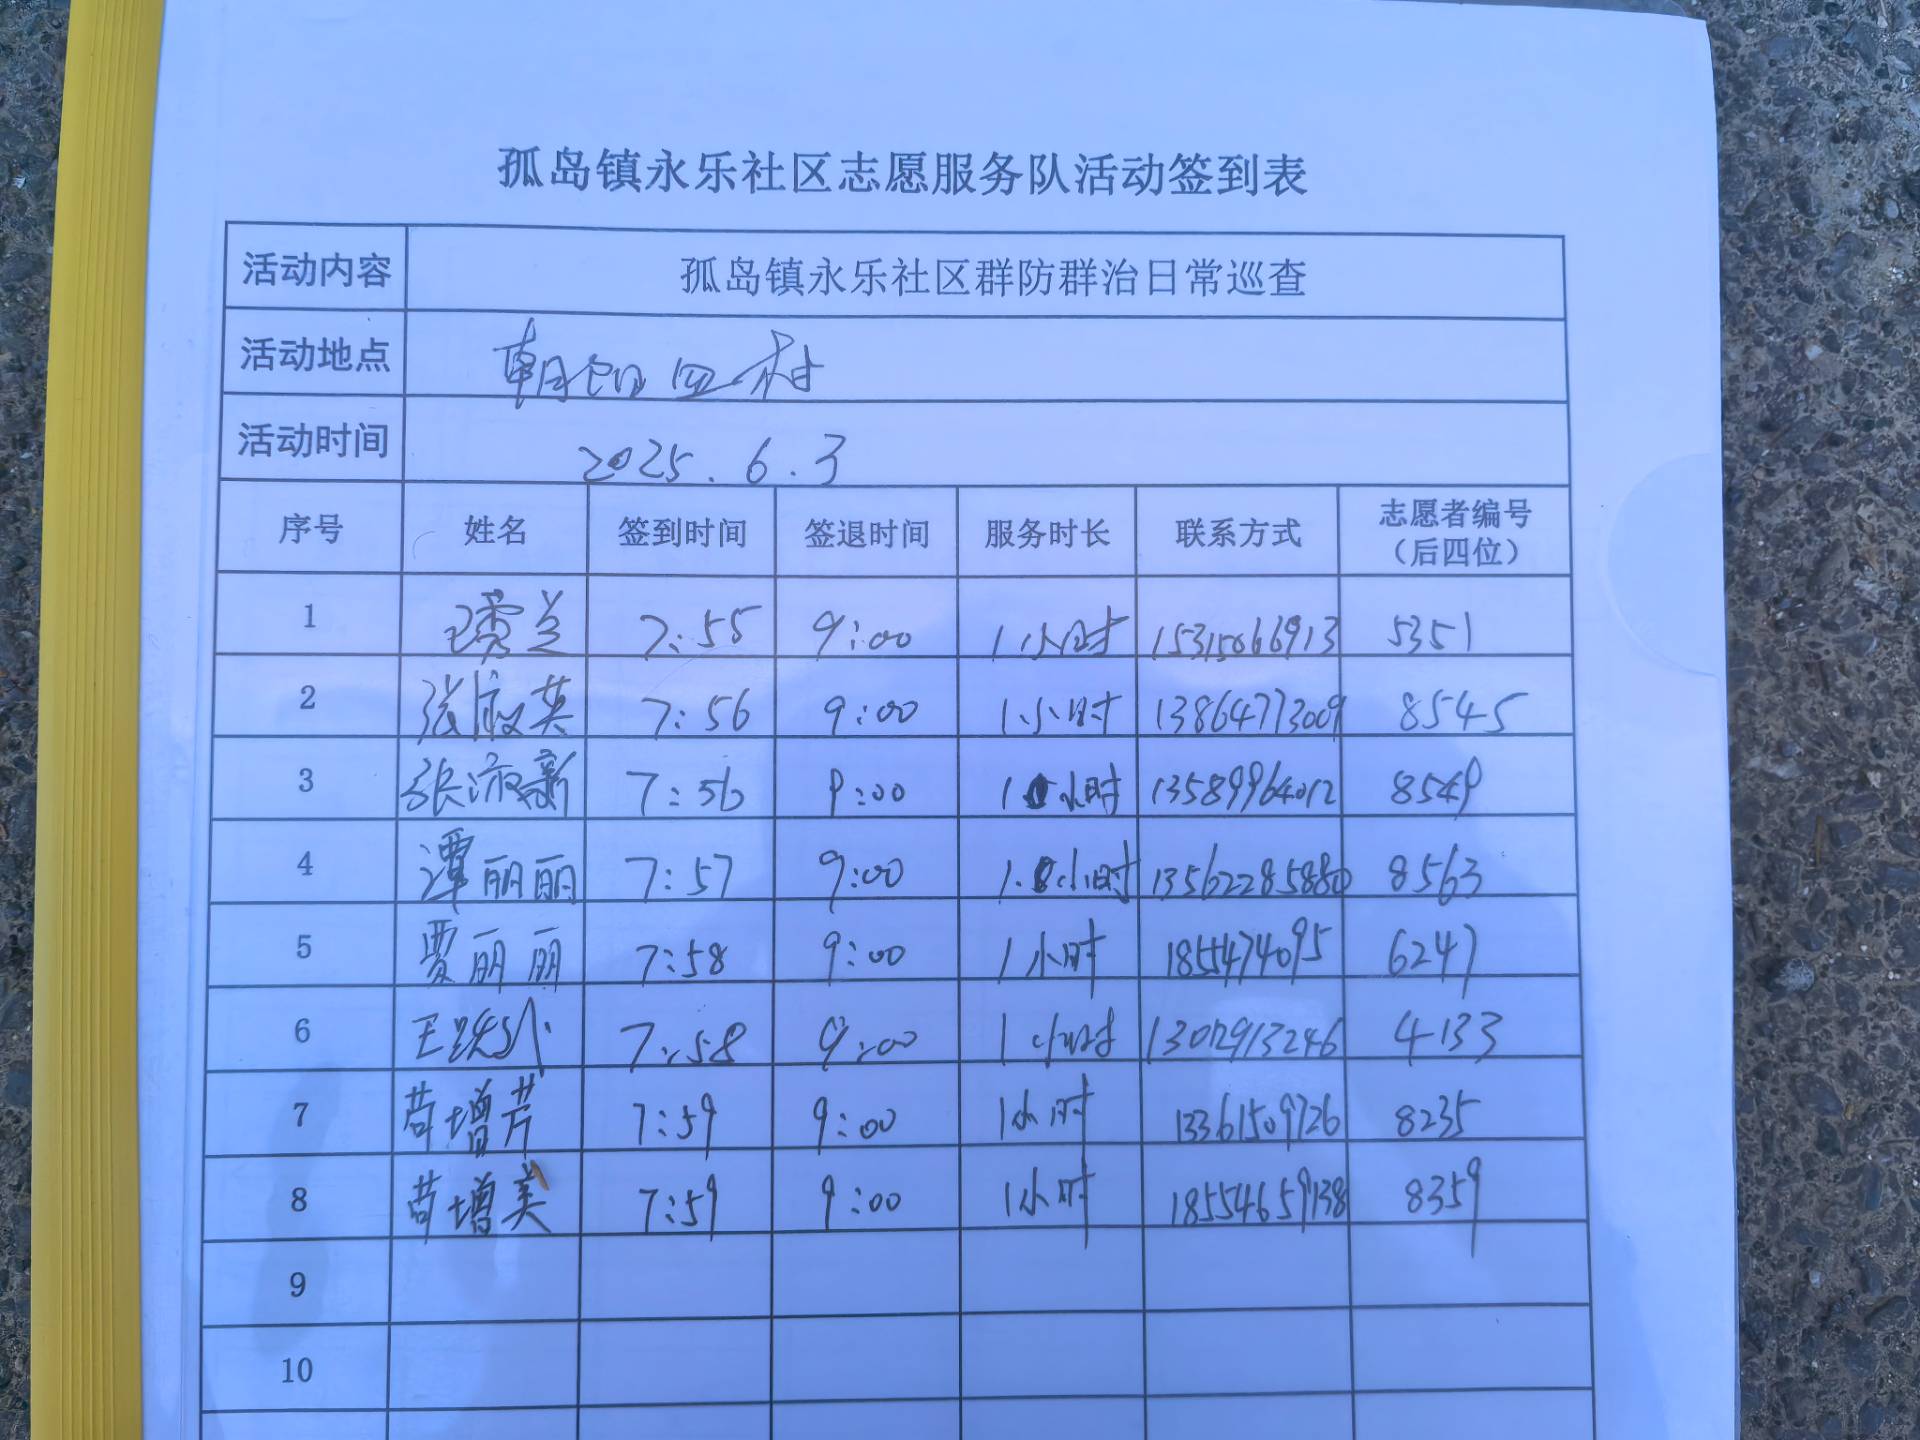 孤岛镇永乐社区志愿服务队活动签到表
活动内容 孤岛镇永乐社区群防群治日常巡查
活动地点 朝阳四村
活动时间 2025.6.3
序号 姓名 签到时间 签退时间 服务时长 联系方式 志愿者编号（后四位）
1 王秀兰 7:55 9:00 1小时 15315066913 5351
2 张淑英 7:56 9:00 1小时 13864773009 8545
3 张淑新 7:56 9:00 1小时 13589964012 8549
4 谭丽丽 7:57 9:00 1小时 13562285880 8563
5 贾丽丽 7:58 9:00 1小时 1855474095 6247
6 王 7:58 9:00 1小时 13012913246 4133
7 苟增芹 7:59 9:00 1小时 13361509726 8235
8 苟增美 7:59 9:00 1小时 18554659138 8359
9
10